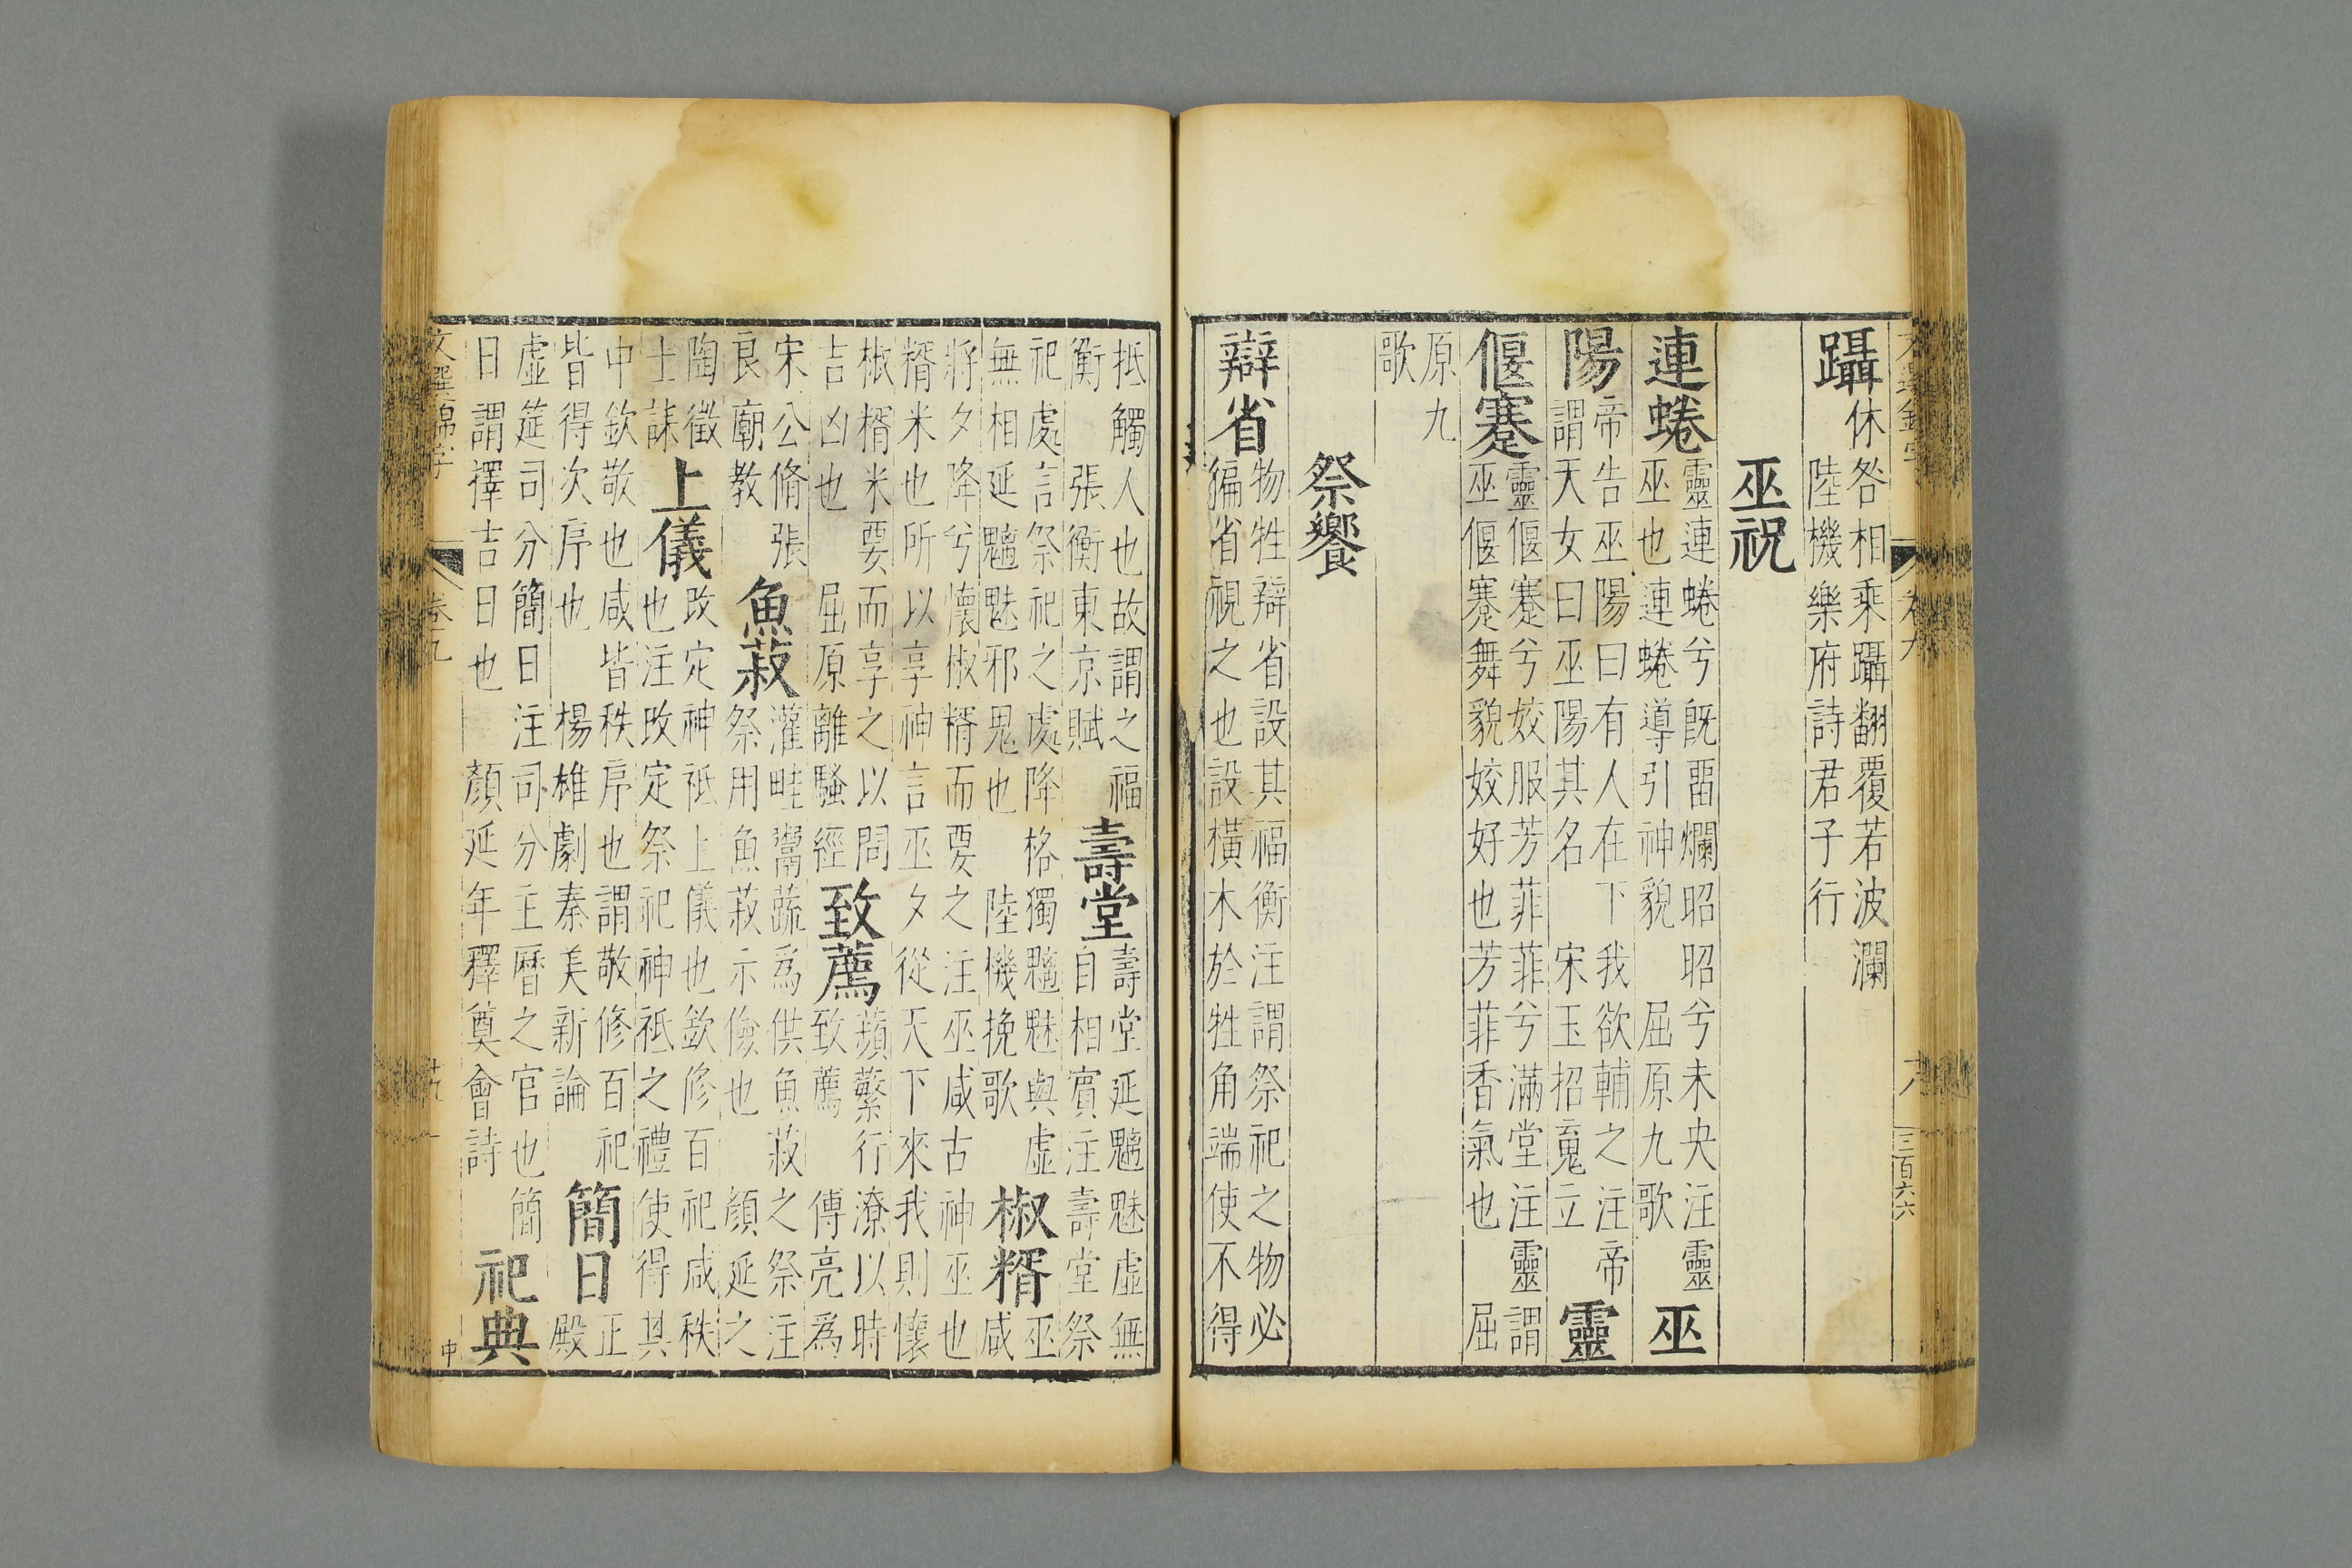 躡休咎相乘躡翻覆若波瀾
陸機樂府詩君子行
巫祝
連蜷靈連蜷兮旣畱爛昭昭兮未央注靈
巫也連蜷導引神貌 屈原九歌 巫
陽帝告巫陽曰有人在下我欲輔之注帝
謂天女曰巫陽其名 宋玉招䰟立 靈
偃蹇靈偃蹇兮姣服芳菲菲兮滿堂注靈謂
巫偃蹇舞貌姣好也芳菲香氣也 屈
原九
歌
祭饗
辯省物牲辯省設其福衡注謂祭祀之物必
徧省視之也設橫木於牲角端使不得
三百六六
抵觸人也故謂之福 壽堂壽堂延魑魅虛無
衡 張衡東京賦 自相賓注壽堂祭
祀處言祭祀之處降格獨魑魅與虛 椒糈巫
無相延魑魅邪鬼也 陸機挽歌 咸
將夕降兮懷椒糈而要之注巫咸古神巫也
糈米也所以享神言巫夕從天下來我則懷
椒糈米要而享之以問 致薦蘋蘩行潦以時
吉凶也 屈原離騷經 致薦 傅亮爲
宋公脩張 魚菽灌畦鬻蔬爲供魚菽之祭注
良廟教 祭用魚菽示儉也 顏延之
陶徵 上儀改定神祗上儀也欽修百祀咸秩
士誄 也注改定祭祀神祗之禮使得其
中欽敬也咸皆秩序也謂敬修百祀 簡日正
皆得次序也 楊雄劇秦美新論 殿
虛筵司分簡日注司分主曆之官也簡 祀典
日謂擇吉日也 顏延年釋奠會詩
文選錦字
卷九
十九
中